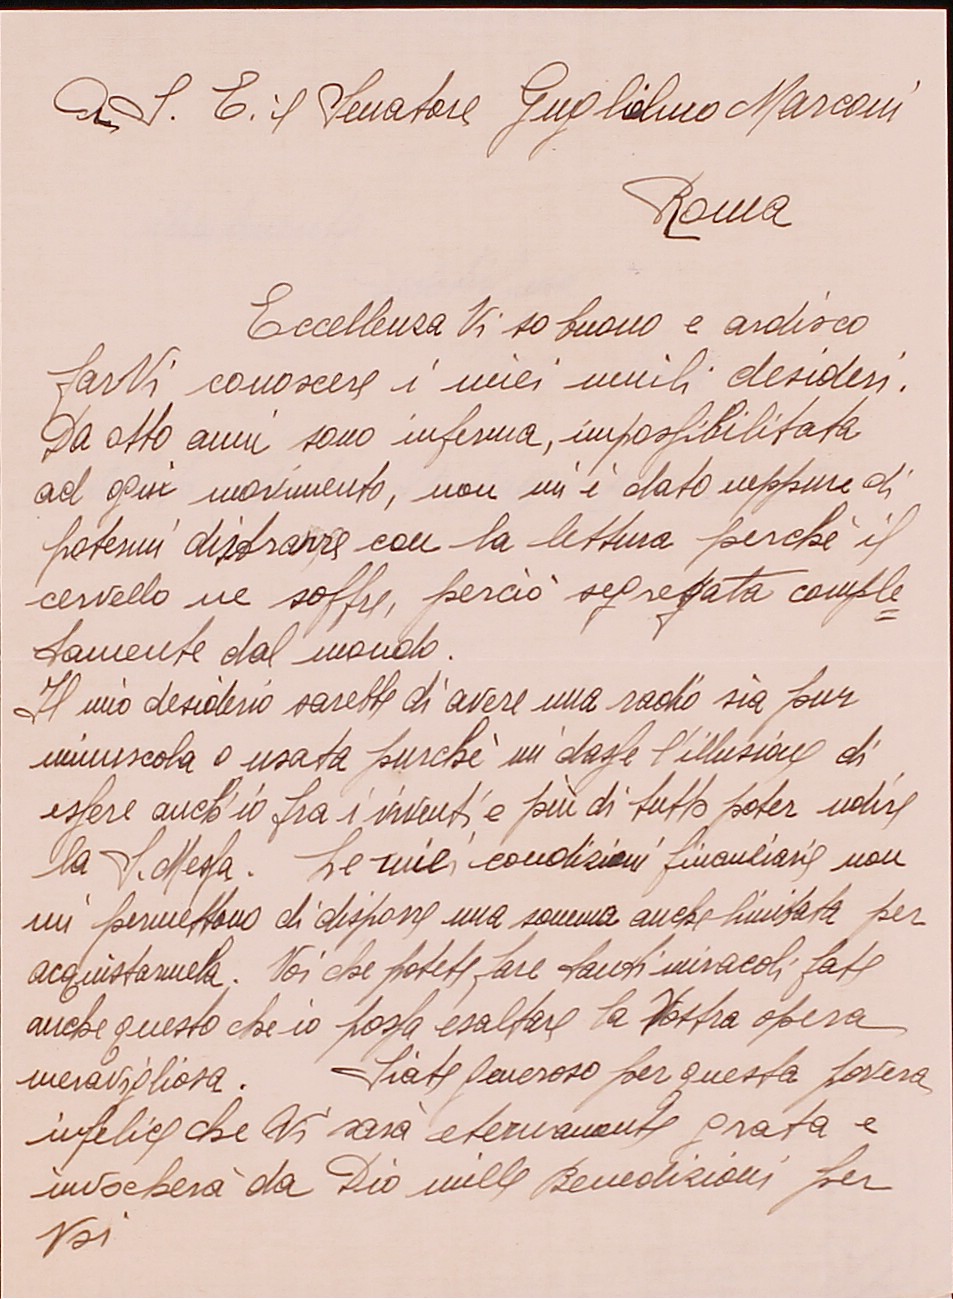 A S. E. il Senatore Guglielmo Marconi
Roma
Eccellenza Vi so buono e ardisco
farVi conoscere i miei umili desideri.
Da otto anni sono inferma, impossibilitata
ad ogni movimento, non mi è dato neppure di
potermi distrarre con la lettura perchè il
cervello ne soffre, perciò segregata comple=
tamente dal mondo.
Il mio desiderio sarebbe di avere una radio sia pur
minuscola o usata purchè mi dasse l'illusione di
essere anch'io fra i viventi e più di tutto poter udire
la S. Messa. Le miei condizioni finanziarie non
mi permettono di disporre una somma anche limitata per
acquistarmela. Voi che potete fare tanti miracoli fate
anche questo che io possa esaltare la Vostra opera
meravigliosa. Siate generoso per questa povera
infelice che Vi sarà eternamente grata e
invocherà da Dio mille Benedizioni per
Voi